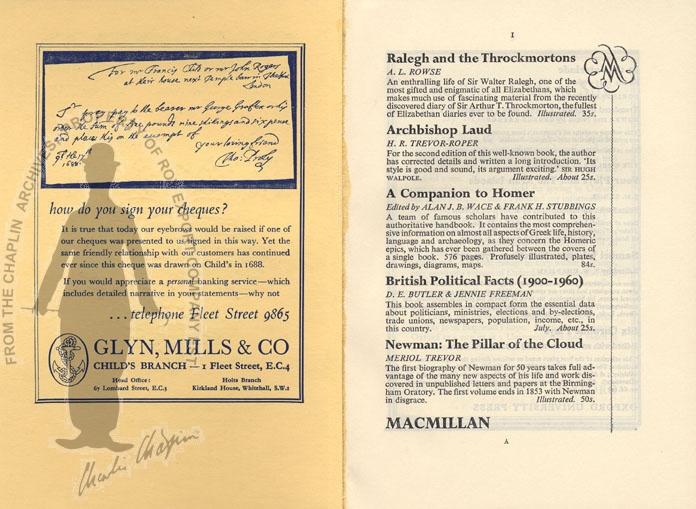 For mr Francis Child or mr John Rogers
at their house next Temple barr in
London
Sr pray pay to the bearer mr George
order the sum of five pounds nine shillings and six pence
and place this on the accompt of
your loving friend
1688.
how do you sign your cheques?
It is true that today our eyebrows would be raised if one of
our cheques was presented to us signed in this way. Yet the
same friendly relationship with our customers has continued
ever since this cheque was drawn on Child's in 1688.
If you would appreciate a personal banking service—which
includes detailed narrative in your statements—why not
...telephone Fleet Street 9865
GLYN, MILLS & CO
CHILD'S BRANCH — 1 Fleet Street, E.C.4
Head Office:
67 Lombard Street, E.C.3
Holts Branch
Kirkland House, Whitehall, S.W.1
FROM THE CHAPLIN ARCHIVES
PROPERTY OF ROY EXPORT COMPANY EST
Charlie Chaplin
I
Ralegh and the Throckmortons
A. L. ROWSE
An enthralling life of Sir Walter Ralegh, one of the
most gifted and enigmatic of all Elizabethans, which
makes much use of fascinating material from the recently
discovered diary of Sir Arthur T. Throckmorton, the fullest
of Elizabethan diaries ever to be found. Illustrated. 35s.
Archbishop Laud
H. R. TREVOR-ROPER
For the second edition of this well-known book, the author
has corrected details and written a long introduction. 'Its
style is good and sound, its argument exciting.' SIR HUGH
WALPOLE. Illustrated. About 25s.
A Companion to Homer
Edited by ALAN J. B. WACE & FRANK H. STUBBINGS
A team of famous scholars have contributed to this
authoritative handbook. It contains the most comprehen-
sive information on almost all aspects of Greek life, history,
language and archaeology, as they concern the Homeric
epics, which has ever been gathered between the covers of
a single book. 576 pages. Profusely illustrated, plates,
drawings, diagrams, maps. 84s.
British Political Facts (1900-1960)
D. E. BUTLER & JENNIE FREEMAN
This book assembles in compact form the essential data
about politicians, ministries, elections and by-elections,
trade unions, newspapers, population, income, etc., in
this country. July. About 25s.
Newman: The Pillar of the Cloud
MERIOL TREVOR
The first biography of Newman for 50 years takes full ad-
vantage of the many new aspects of his life and work dis-
covered in unpublished letters and papers at the Birming-
ham Oratory. The first volume ends in 1853 with Newman
in disgrace. Illustrated. 50s.
MACMILLAN
A